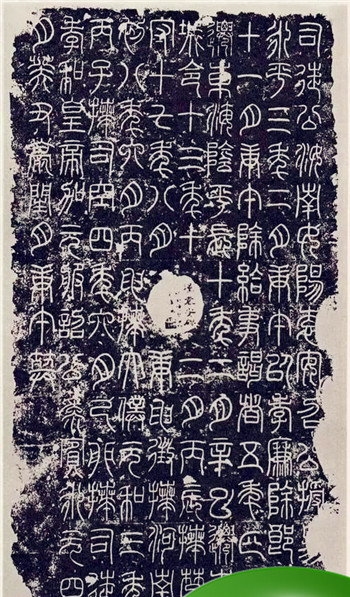 司徒公汝南女陽袁安召公授
永平三年二月庚午以孝廉除郎
十一月庚午除給事謁者五年正
遷東海陰平長十年二月辛巳遷
城令十三年十二月丙辰拜楚
守十七年八月庚申徵拜河南
初八年六月丙申拜太僕元和三年
丙子拜司空四年六月己卯拜司徒
孝和皇帝加元服詔公為賓永元四
月癸丑薨閏月庚午葬